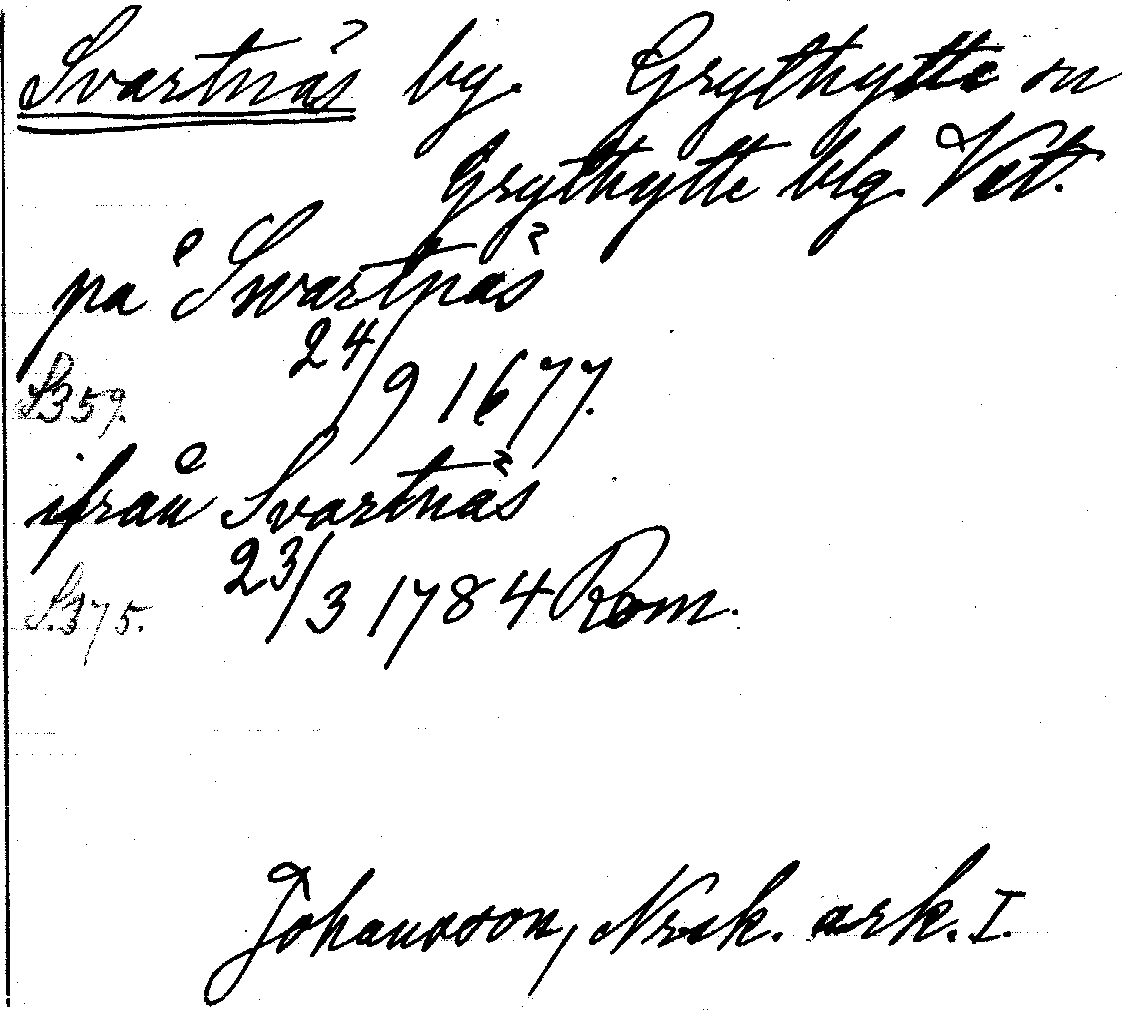 Svartnäs by. Grythytte sn
Grythytte blg. Vstt.
på Swartnäs
24/9 1677.
S359.
ifrån Svartnäs
23/3 1784 Rom.
S.375.
Johansson, Nrsk. ark. I.